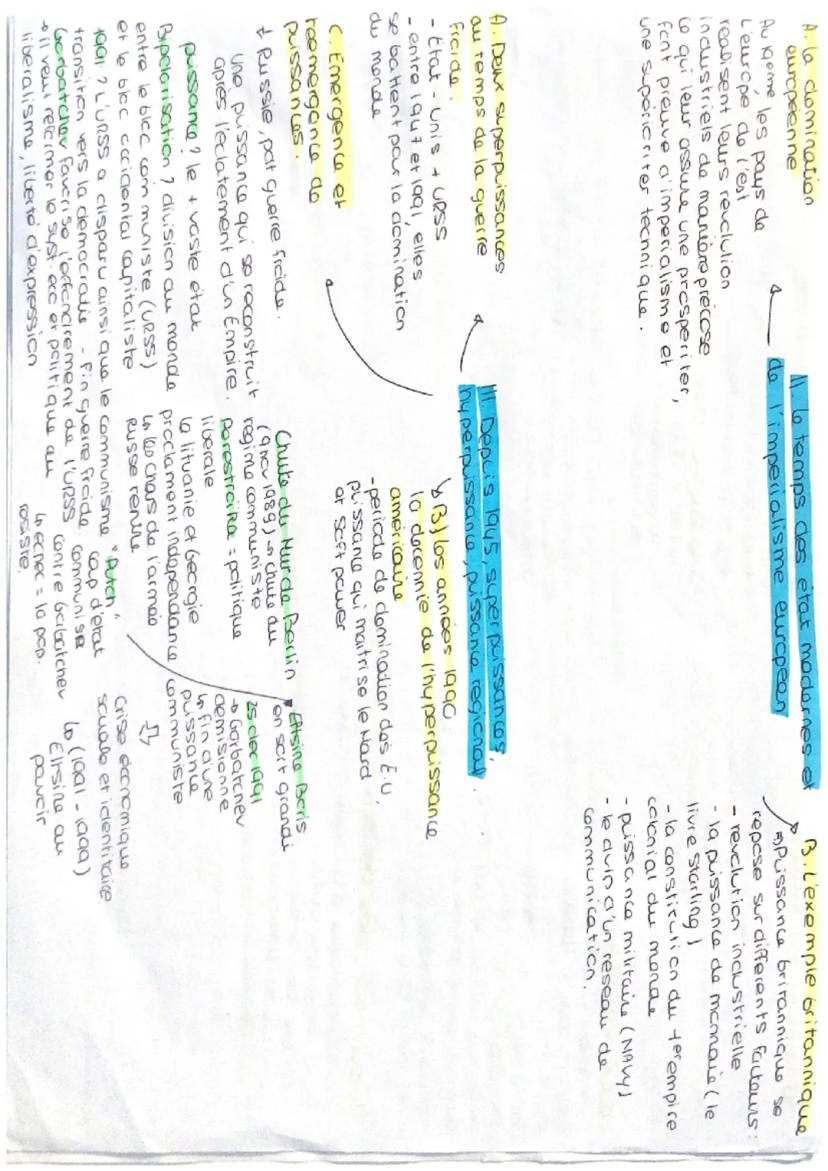 II. Le temps des état modernes et
de l'impérialisme européen
A. La domination
européenne
Au 19eme les pays de
l'europe de l'est
realisent leurs revolution
industriels de manière précose
ce qui leur assure une prosperiter,
font preuve d'imperialisme et
une superioriter technique.
B. L'exemple britannique
⇒ Puissance britannique se
repose sur differents facteurs:
- revolution industrielle
- la puissance de monnaie (le
livre Starling)
- la constitution du 1er empire
colonial du monde
- puissance militaire (NAVY)
- le avin d'un reseau de
communication.
III. Depuis 1945, superpuissances,
hyperpuissance, puissance regional.
A. Deux superpuissances
au temps de la guerre
froide.
- État-Unis + URSS
- entre 1947 et 1991, elles
se battent pour la domination
du monde
B) Les années 1990.
la decennie de l'hyperpuissance
américaine
- periode de domination des É.U,
puissance qui maitrise le Hard
et soft power
C. Emergence et
réemergence de
puissances.
+ Russie, pdt guerre froide.
une puissance qui se reconstruit
après l'éclatement d'un Empire.
puissance? le + vaste état
Bipolarisation? division du monde
entre le bloc communiste (URSS)
et le bloc occidental capitaliste
1991? L'URSS a disparu ainsi que le communisme
transition vers la democratie - Fin guerre froide.
Gorbatchev favorise l'effondrement de l'URSS
→ il veut reformer le syst. eco et politique au
liberalisme, liberté d'expression
Chute du Mur de Berlin
(9 nov 1989) → chute du
regime communiste
Perestroïka = politique
liberale
la lituanie et Georgie
proclament independance
↳ les chars de l'armée
Russe rentre
* Putch,
coup d'état
communiste
contre Gorbatchev
↳ echec = la pop.
resiste.
Eltsine Boris
en sort grandi
25 dec 1991
→ Gorbatchev
demisionne
↳ fin d'une
puissance
communiste
⇩
crise économique
sociale et identitaire
↳ (1991 - 1999)
Eltsine au
pouvoir